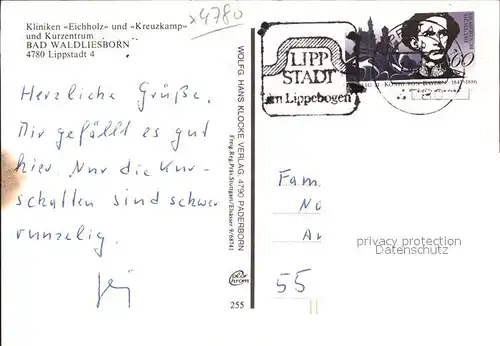 Kliniken «Eichholz» und «Kreuzkamp»
und Kurzentrum
BAD WALDLIESBORN
4780 Lippstadt 4
4780
Herzliche Grüße.
Mir gefällt es gut
hier. Nur die Kur-
schatten sind schwer
runzelig.
WOLFG. HANS KLOCKE VERLAG, 4790 PADERBORN
Freig. Reg. Präs. Stuttgart/Elsäser 9/68741
255
LIPP
STADT
im Lippebogen
60
KÖNIG VON BAYERN
1886
Fam.
55
privacy protection
Datenschutz